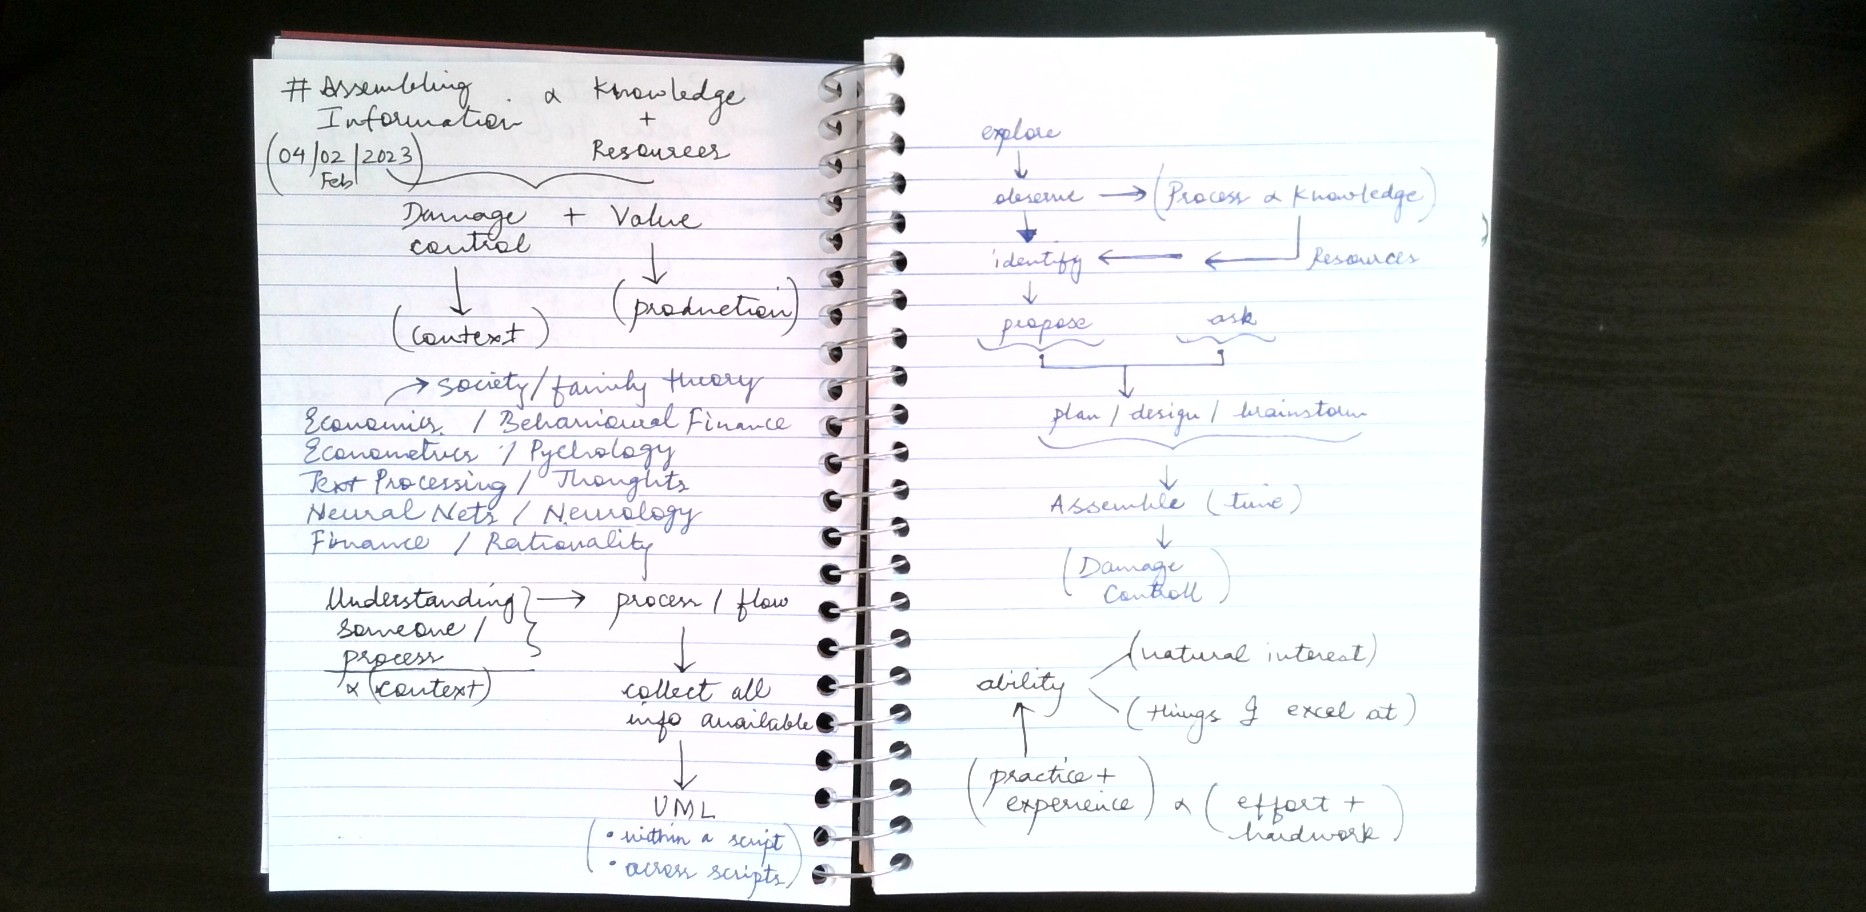 # Assembling ∝ Knowledge
Information +
Resources
(04/02/2023)
Feb
Damage + Value
control
↓ ↓
(context) (production)
→ society/family theory
Economics / Behavioural Finance
Econometrics / Pychology
Text Processing / Thoughts
Neural Nets / Neurology
Finance / Rationality
Understanding } → process / flow
someone /
process
∝ (context)
↓
collect all
info available
↓
UML
(• within a script
• across scripts)
explore
↓
observe → (Process ∝ Knowledge)
↓
identify ← ← Resources
↓
propose ask
↓
plan / design / brainstorm
↓
Assemble (time)
↓
(Damage
Controll)
(natural interest)
ability
(things I excel at)
↑
(practice +
experience) ∝ (effort +
hardwork)